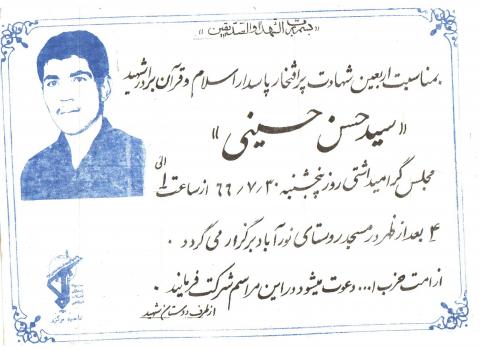 «بسم رب الشهداء والصدیقین»
بمناسبت اربعین شهادت پرافتخار پاسدار اسلام و قرآن برادر شهید
«سید حسن حسینی»
مجلس گرامیداشتی روز پنجشنبه ۶۶/۷/۳۰ از ساعت ۱ الی
۴ بعد از ظهر در مسجد روستای نورآباد برگزار می گردد .
از امت حزب ا... دعوت میشود در این مراسم شرکت فرمایند .
از طرف دوستان شهید
سپاه
پاسداران
انقلاب
اسلامی
ناحیه مرکزی